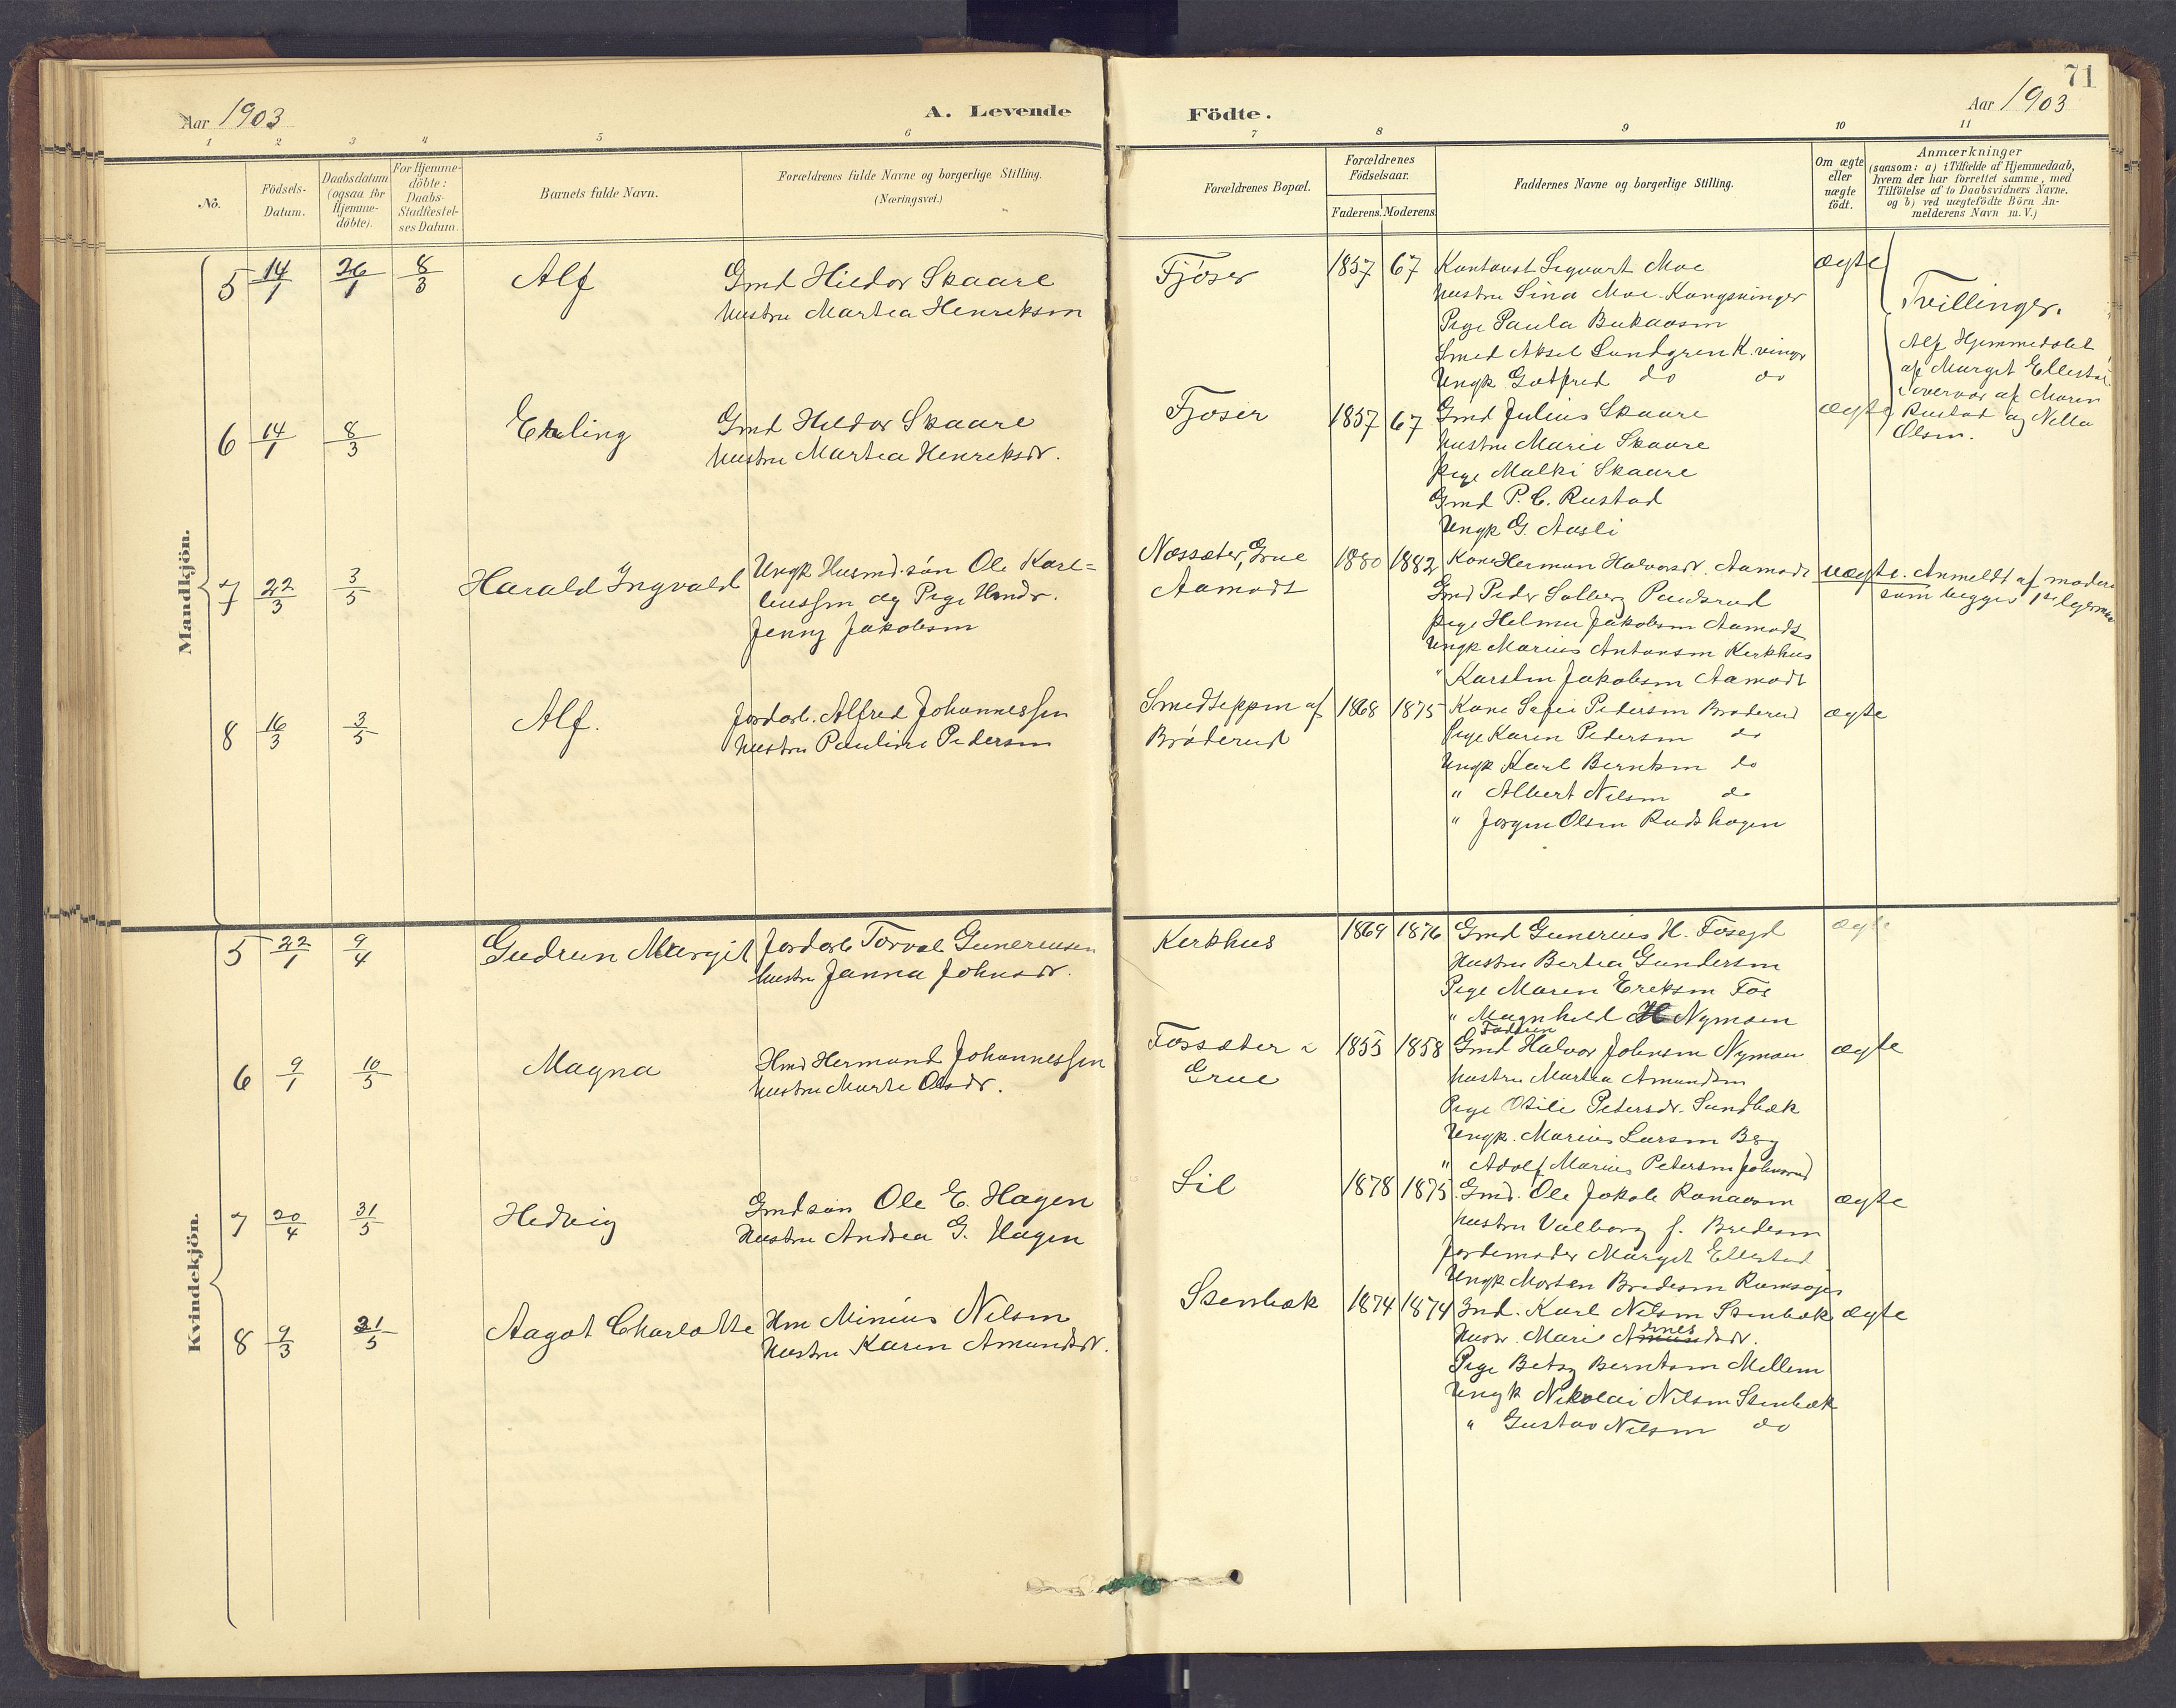 71
Aar 1903
A. Levende
Födte.
Aar 1903
1 2 3 4 5 6 7 8 9 10 11
No.
Födsels-
Datum.
Daabsdatum
(ogsaa for
Hjemme-
döbte).
For Hjemme-
döbte:
Daabs-
Stadfæstel-
ses Datum.
Barnets fulde Navn.
Forældrenes fulde Navne og borgerlige Stilling.
(Næringsvei.)
Forældrenes Bopæl.
Forældrenes
Födselsaar.
Faderens. Moderens.
Faddernes Navne og borgerlige Stilling.
Om ægte
eller
uægte
födt.
Anmærkninger
(saasom: a) i Tilfælde af Hjemmedaab,
hvem der har forrettet samme, med
Tilföielse af to Daabsvidners Navne.
og b) ved uægtefödte Börn An-
melderens Navn m. V.)
Mandkjön.
5 14/1 26/1 8/3 Alf
Gmd Hildor Skaare
hustru Martea Henriksen
Fjöser
1857 67
Kontorist Sigvart Moe
hustru Lina Moe Kongsvinger
Pige Paula
Smed Aksel Lundgren K.vinger
Ungk Gotfred do do
ægte
Tvillinger.
Alf Hjemmedøbt
af Margit Ellestad
overvær af Maren
Rustad og Nella
Olsen.
6 14/1 8/3 Erling
Gmd Hildor Skaare
hustru Martea Henriksdr.
Fjoser
1857 67
Gmd Julius Skaare
hustru Marie Skaare
pige Malki Skaare
Gmd P. C. Rustad
Ungk G. Aasli
ægte
7 22/3 3/5 Harald Ingvald
Ungk Husmd.sön Ole Karl=
iussen og Pige Hmdr.
Jenny Jakobsen
Næssæter, Grue
Aamodt
1880 1882
Kone Herman Halvorsdr. Aamodt
Gmd Peder Solberg
pige Helmer Jakobsen Aamodt
Ungk Marius Antonsen Kerkhus
" Karsten Jakobsen Aamodt
uægte. Anmeldt af moderen
som begges 1ste leiermaal
8 16/3 3/5 Alf.
Jordarb. Alfred Johannessen
hustru Pauline Pedersen
Smedteppen af
Bröderud
1868 1875
Kone Sefie Pedersen Broderud
Pige Karen Pedersen do
Ungk Karl Berntsen do
" Albert Nilsen do
" Jorgen Olsen Rudshagen
ægte
Kvindekjön.
5 22/1 9/4 Gudrun Margit
Jordarb Torval Gunerius­en
hustru Janna Johnsdr.
Kerkhus
1869 1876
Gmd Gunerius H.
Hustru Bertea Gundersen
Pige Maren Ereksen Fos
" Magnhild H Nymoen
ægte
6 9/1 10/5 Magna
Hmd Hermand Johannessen
hustru Marte Olsdr.
Fossæter i
Grue
1855 1858
Gmd Halvor Johnsen Nymoen
hustru Martea Amundsen
Pige Otilie Petersdr. Sundbæk
Ungk. Marius Larsen Berg
" Adolf Marius Petersen
ægte
7 20/4 31/5 Hedvig
Gmdsön Ole E. Hagen
Hustru Andrea G. Hagen
Lil
1878 1875
Gmd. Ole Jakob
hustru Valborg f. Bredesen
Jordemoder Margit Ellestad
Ungk Morten Bredesen
ægte
8 9/3 31/5 Aagot Charlotte
Hm Minius Nilsen
Hustru Karen Amundsdr.
Stenbæk
1874 1874
Gmd. Karl Nilsen Stenbæk
Hustr. Marie Arnesdr.
Pige Betzy Berntsen Mellem
Ungk Nikolai Nilsen Stenbæk
" Gustav Nilsen do
ægte